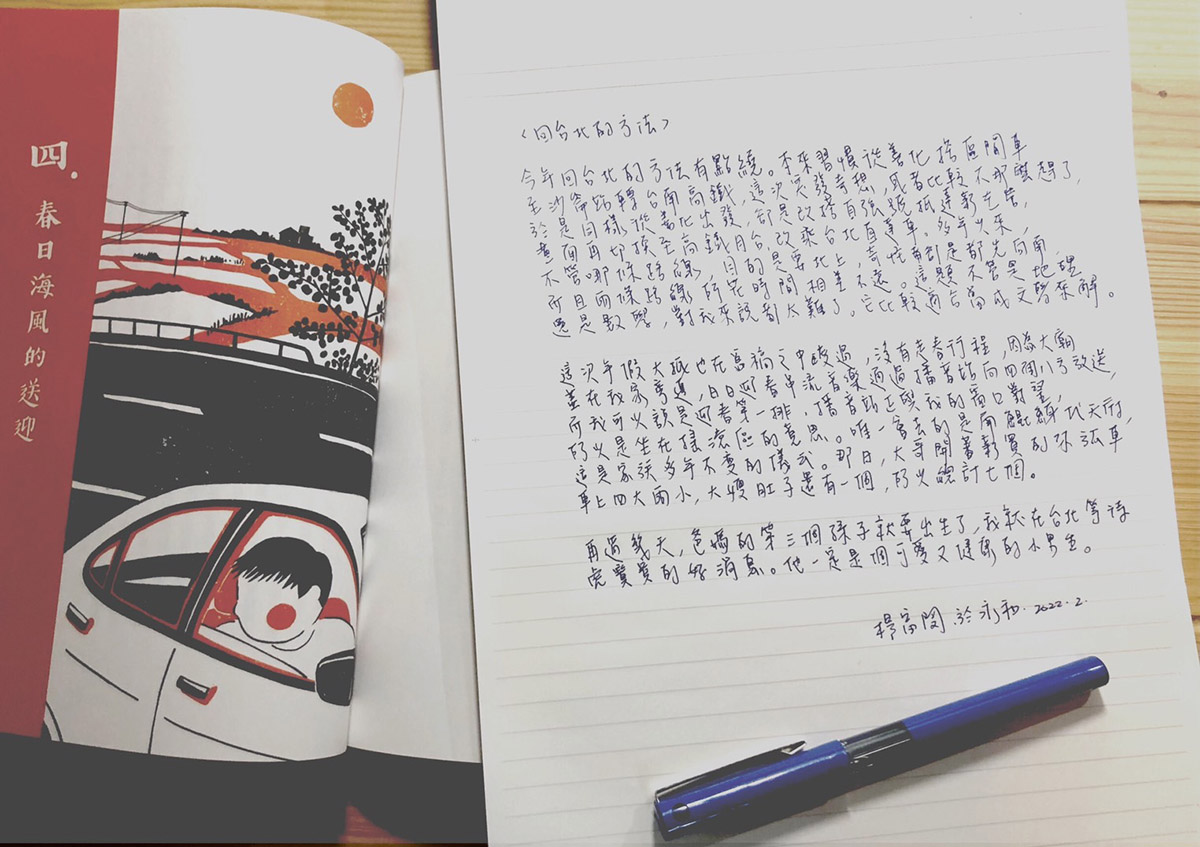 四.
春日海風的送迎
〈回台北的方法〉
今年回台北的方法有點繞。本來習慣從善化搭區間車
至沙崙站轉台南高鐵，這次突發奇想，或者比較不那麼趕了，
於是同樣從善化出發，卻是改搭自強號抵達新左營，
裏面再切換至高鐵月台，改乘台北直達車。多年以來，
不管哪條路線，目的是要北上，奇怪南部是都先向南，
而且兩條路線所花時間相差不遠。這題不管是地理
還是數學，對我來說都太難了。它比較適合當成文學來解。
這次年假大抵也在當福之中度過，沒有走春行程，因為大廟
蓋在我家旁邊，日日迎春串流音樂通過播音站向四面八方放送，
而我可以說是迎春第一排，播音站正與我的窗口對望，
所以是坐在搖滾區的意思。唯一會去的是南鯤鯓代天府，
這是家族多年不變的儀式。那日，大哥開著新買的休旅車，
車上四大兩小，大嫂肚子還有一個，所以總計七個。
再過幾天，爸媽的第三個孫子就要出生了，我就在台北等待
虎寶寶的好消息。他一定是個可愛又健康的小男生。
楊富閔 於永和. 2022.2.